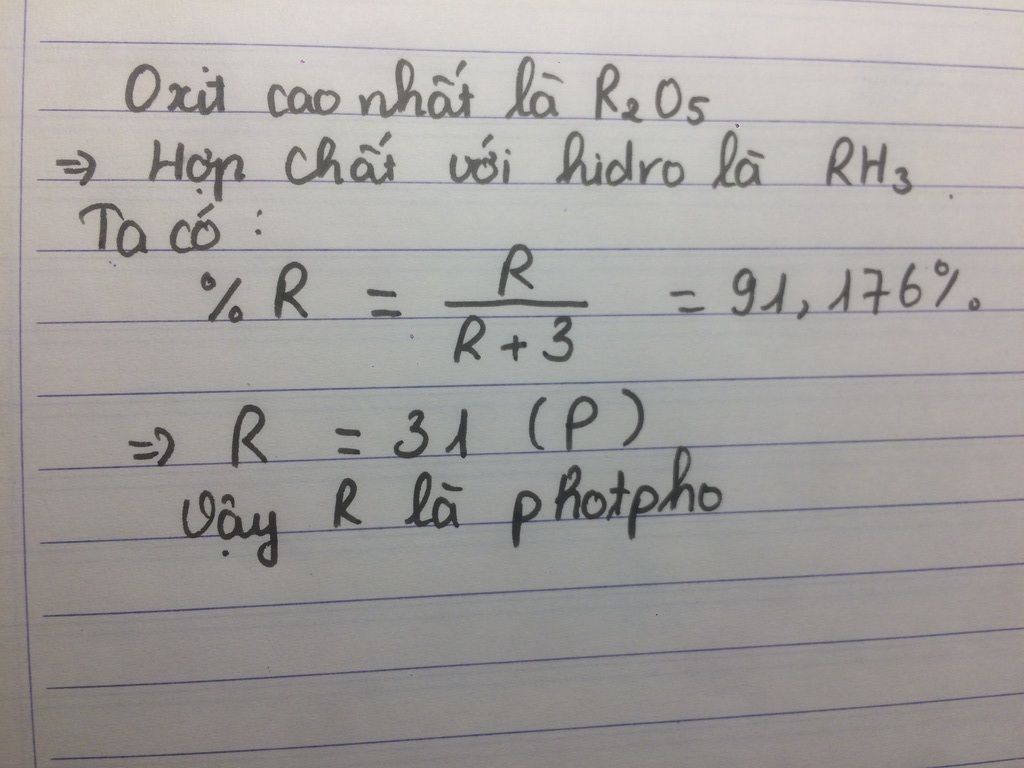 Oxit cao nhất là R₂O₅
⇒ Hợp chất với hidro là RH₃.
Ta có :
% R = R / (R + 3) = 91,176%.
⇒ R = 31 (P)
Vậy R là photpho